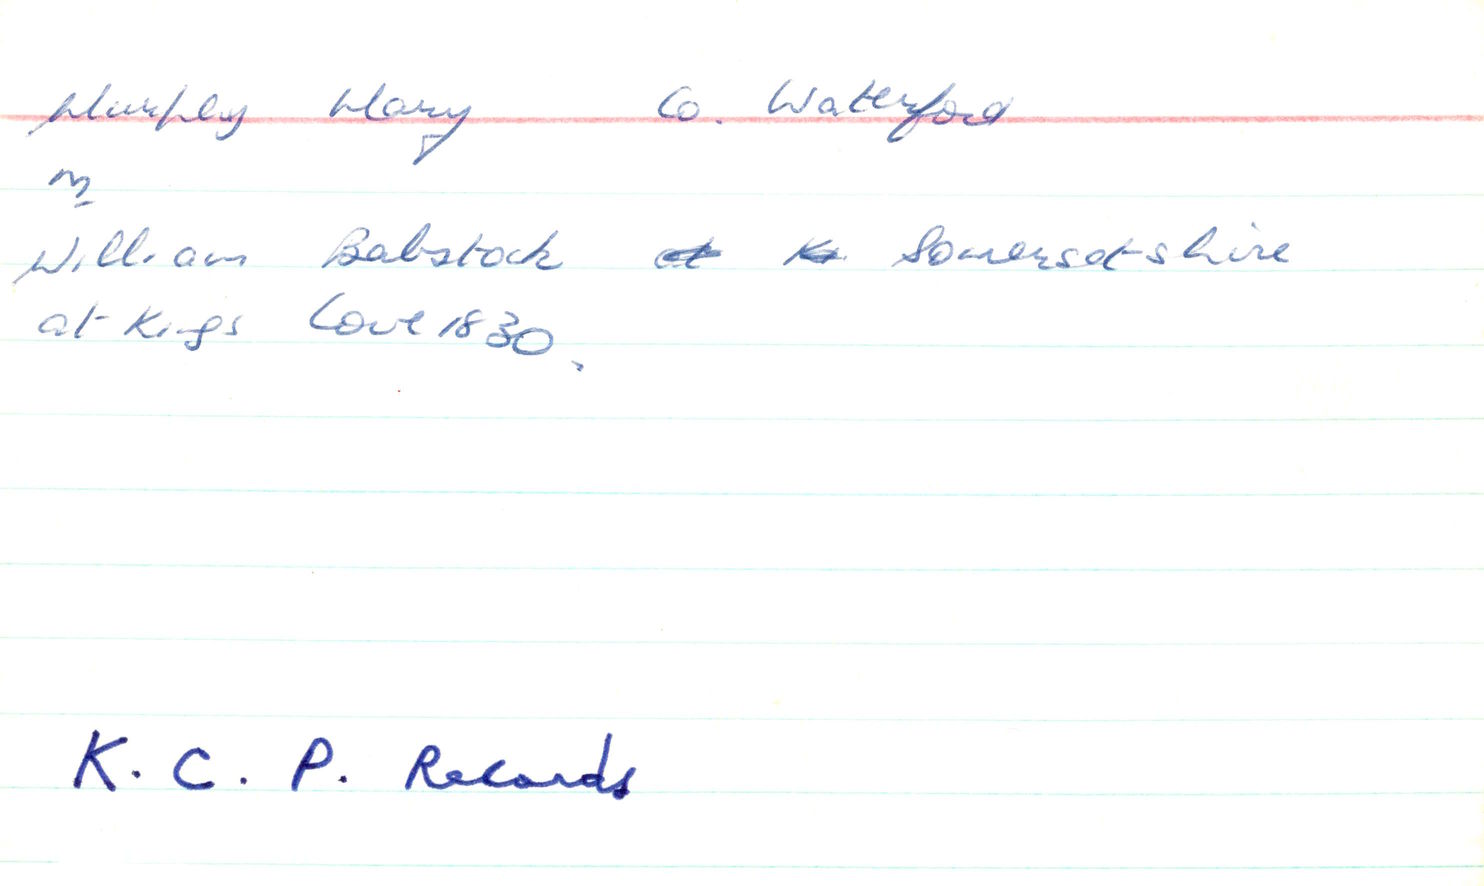 Murphy Mary Co. Waterford
m
William Babstock at Somersetshire
at Kings Cove 1830.
K. C. P. Records